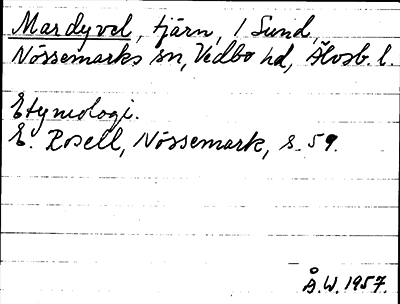 Mardyvel, tjärn, 1 Sund,
Nössemarks sn, Vedbo hd, Älvsb. l.
Etymologi.
E. Rosell, Nössemark, s. 59.
Å.W. 1957.